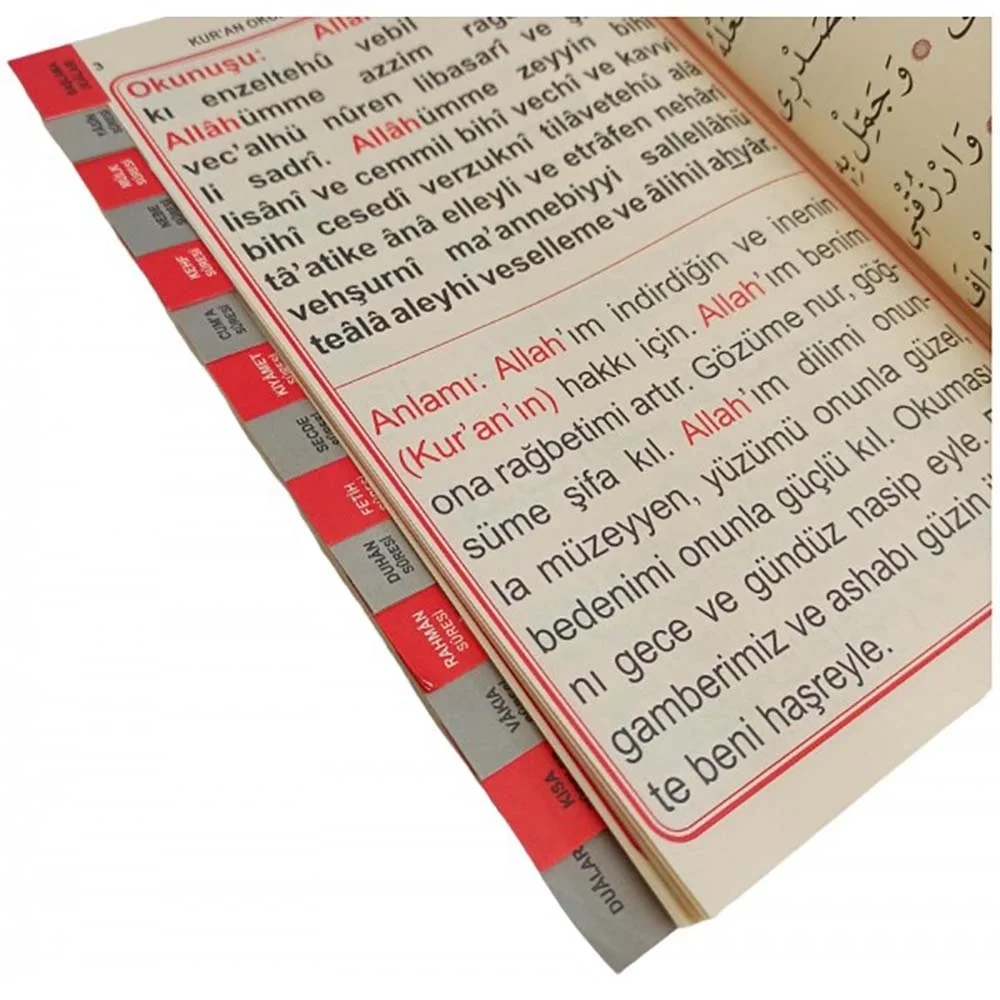 3
KUR'AN OKU
Okunuşu: Alla
kı enzeltehû vebil
Allâhümme azzim rağ
vec'alhü nûren libasarî ve ş
li sadrî. Allâhümme zeyyin bihî
lisânî ve cemmil bihî vechî ve kavvi
bihî cesedî verzuknî tilâvetehû alâ
tâ'atike ânâ elleyli ve etrâfen nehâri
vehşurnî ma'annebiyyi sallellâhü
teâlâ aleyhi veselleme ve âlihil ahyâr.
Anlamı: Allah'ım indirdiğin ve inenin
(Kur'an'ın) hakkı için. Allah'ım benim
ona rağbetimi artır. Gözüme nur, göğ-
süme şifa kıl. Allah'ım dilimi onun-
la müzeyyen, yüzümü onunla güzel,
bedenimi onunla güçlü kıl. Okuması
nı gece ve gündüz nasip eyle.
gamberimiz ve ashabı güzin
te beni haşreyle.
YÂSİN
SÛRESİ
MÜLK
SÛRESİ
NEBE
SÛRESİ
KEHF
SÛRESİ
CUM'A
SÛRESİ
KIYÂMET
SÛRESİ
SECDE
SÛRESİ
FETİH
SÛRESİ
DUHÂN
SÛRESİ
RAHMÂN
SÛRESİ
VÂKIA
SÛRESİ
KISA
DUÂLAR
وَجَمِّلْ بِهِ
وَارْزُقْنِي